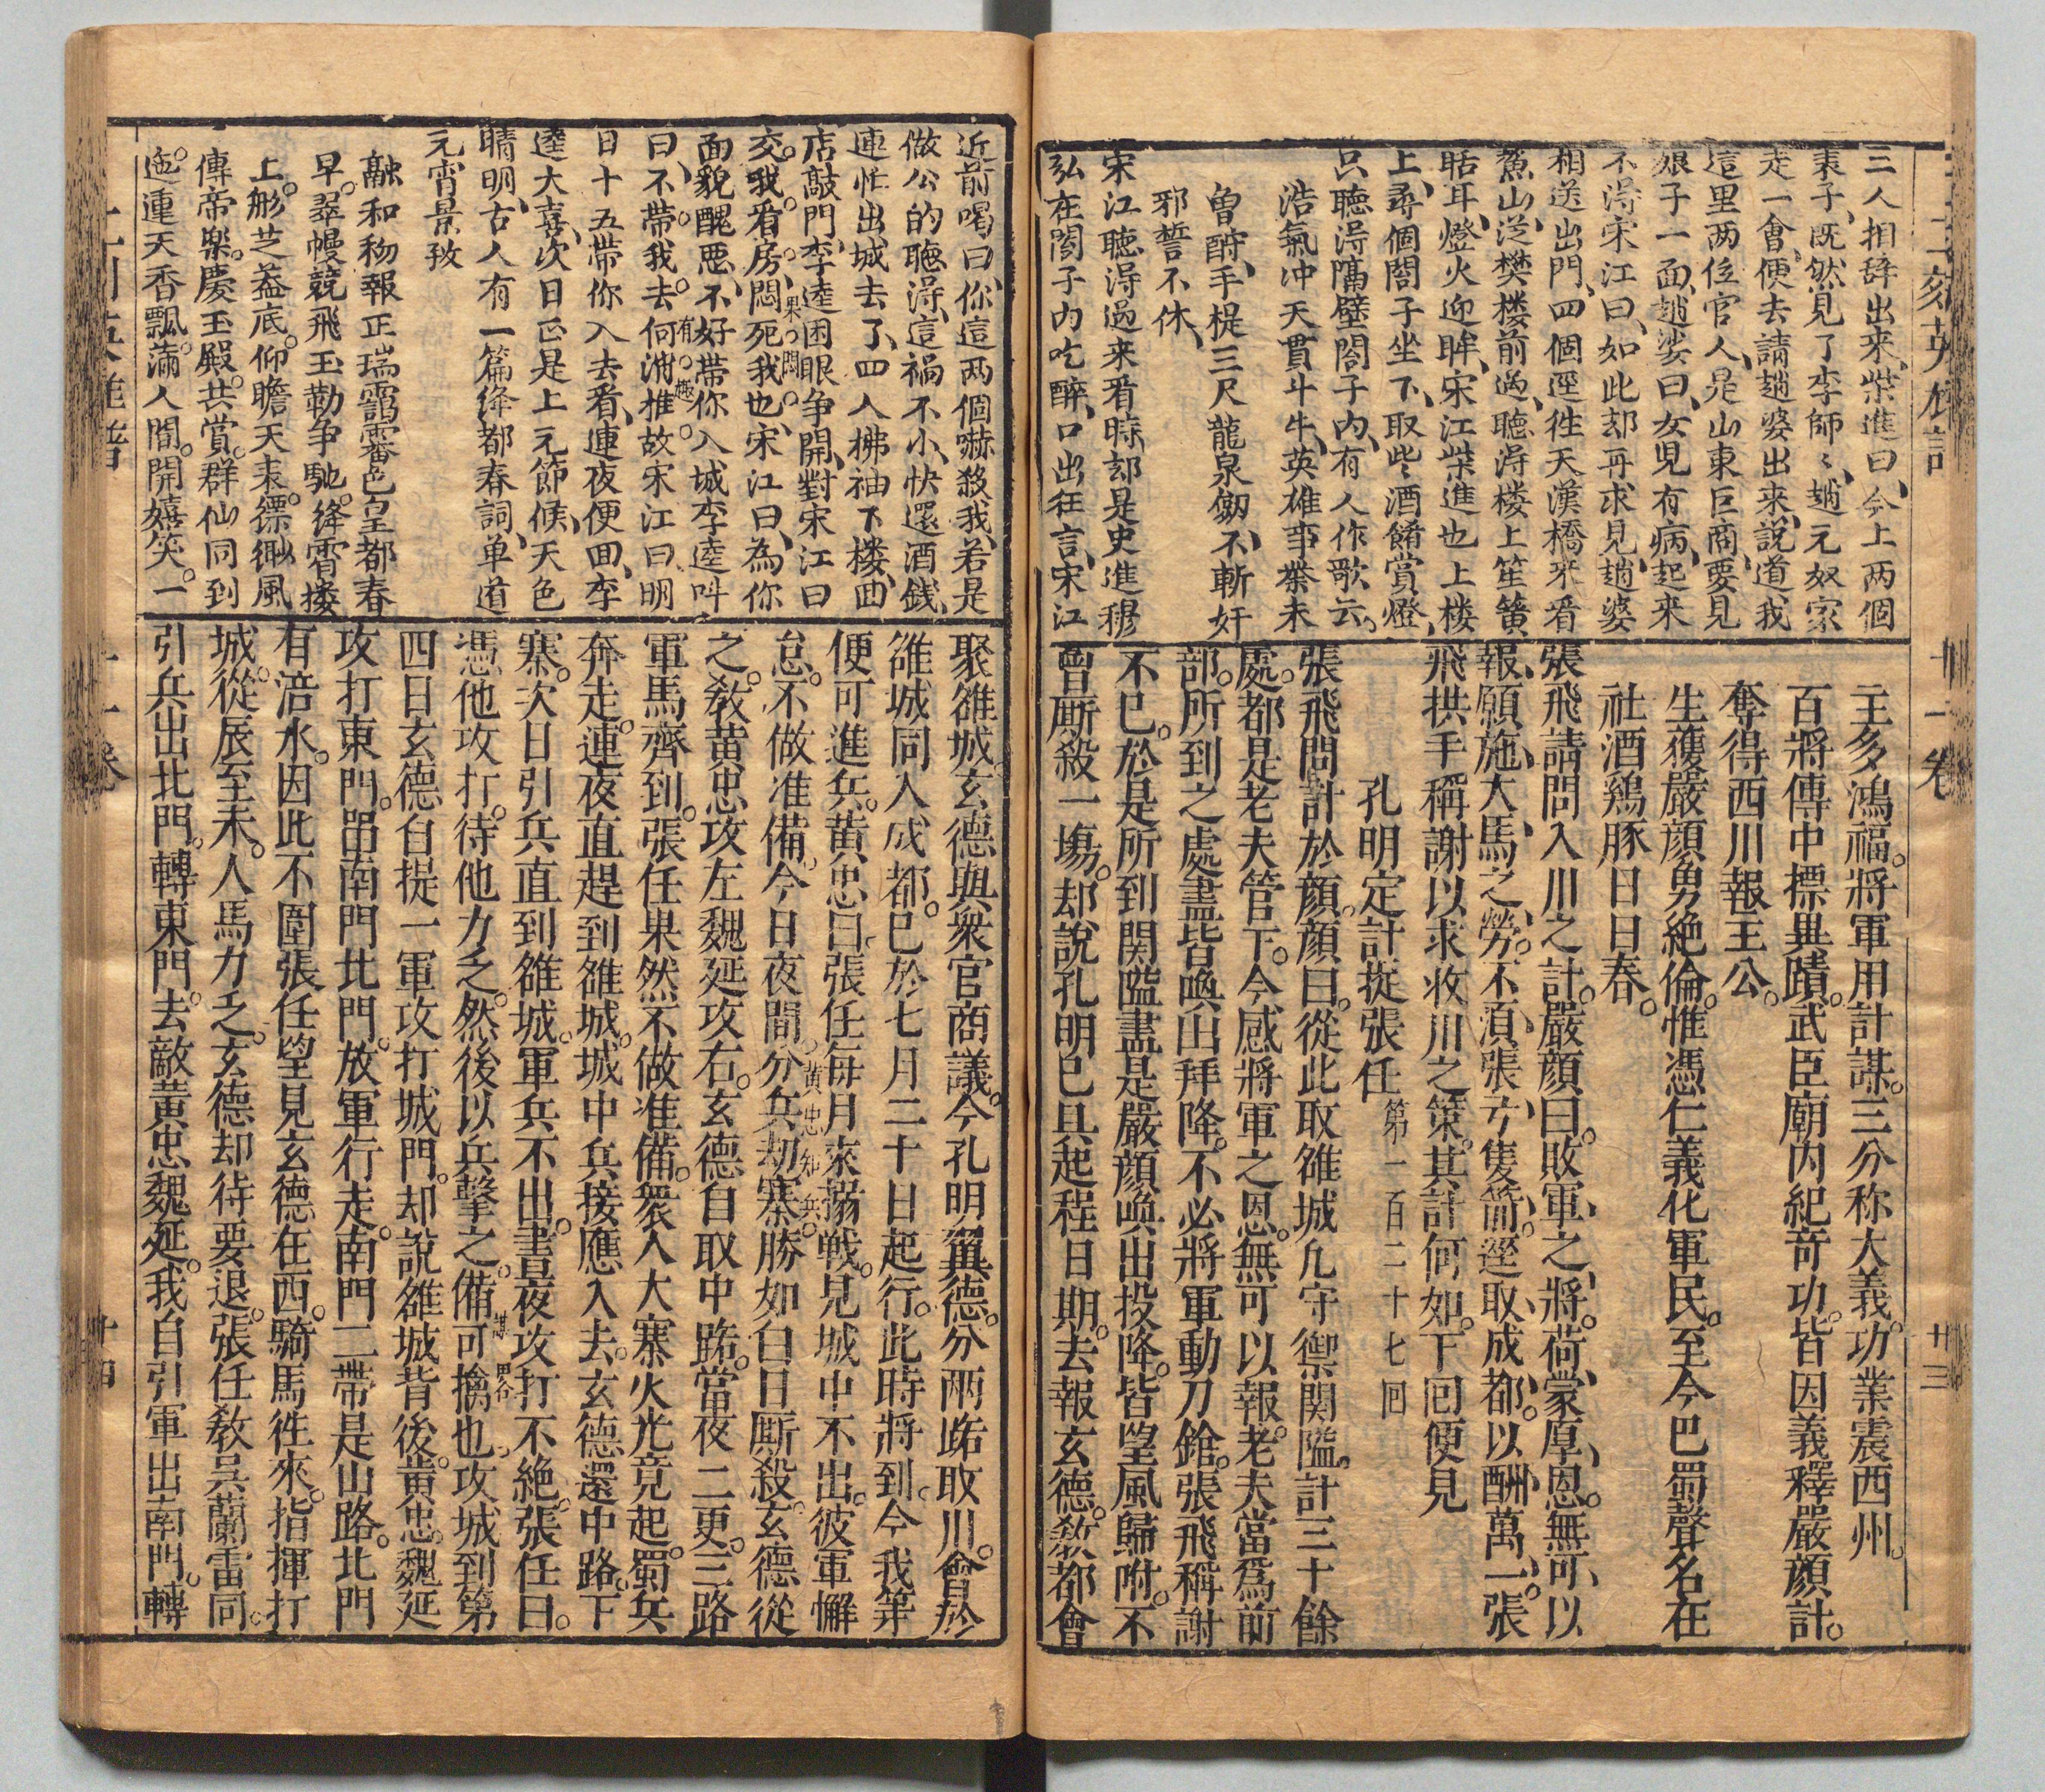 二刻英雄譜
十一卷
廿三
三人相辞出來、柴進曰、今上两個
表子、既然見了李師〻、趙元奴家
走一會、便去請趙婆出來、說道我
這里两位官人、是山東巨商、要見
娘子一面、趙婆曰、女児有病、起來
不淂宋江曰、如此却再求見、趙婆
相送出門、四個逕徃天漢橋來看
鰲山、迳樊楼前過、聴淂楼上笙簧
聒耳、燈火迎眸、宋江柴進也上楼
上、尋個閤子坐下、取些酒餚賞燈、
只聴淂隔壁閤子内、有人作歌云。
浩氣冲天貫斗牛、英雄事業未
曽酧、手提三尺龍泉劒、不斬奸
邪誓不休、
宋江聴淂過來看時、却是史進穆
弘在閤子内吃醉、口出狂言、宋江
主多鴻福。將軍用計謀。三分称大義。功業震西州。
百將傳中摽異蹟。武臣廟内紀竒功。皆因義釋嚴顔計。
奪得西川報主公。
生獲嚴顔勇絶倫。惟憑仁義化軍民。至今巴蜀聲名在
社酒鶏豚日日春。
張飛請問入川之計。嚴顔曰。敗軍之將。荷蒙厚恩。無可以
報。願施犬馬之勞。不湏張弓隻箭。逕取成都。以酬萬一。張
飛拱手稱謝以求收川之策。其計何如。下回便見
孔明定計捉張任　第一百二十七囘
張飛問計於顔。顔曰。從此取雒城凢守禦関隘。計三十餘
處。都是老夫管下。今感將軍之恩。無可以報。老夫當爲前
部。所到之處盡皆喚出拜降。不必將軍動刀鎗。張飛稱謝
不已。於是所到関隘盡是嚴顔喚出投降。皆望風歸附。不
曾厮殺一塲。却說孔明已且起程日期。去報玄德。教都會
近前喝曰、你這两個嚇殺我、若是
做公的聴淂、這禍不小、快還酒錢、
連忙出城去了、四人拂袖下楼、囬
店敲門、李逵困眼争開、對宋江曰
交。我。看。房、悶死我也、宋江曰、為你
果。悶。
面貌醜悪、不好帯你入城李逵呌
曰、不帯我去何消推故宋江曰明
有。趣。
日十五帯你入去看、連夜便囬、李
逵大喜、次日正是上元節候、天色
晴明、古人有一篇绛都春詞、单道
元宵景致
融和初報正瑞靄霽色皇都春
早。翠幰競飛玉勒争馳。绛霄楼
上。彤芝葢底。仰瞻天表。缥緲風
傳帝楽。慶玉殿。共賞。群仙同到
迤逦天香飄滿。人間。開嬉笑。一
聚雒城。玄德與衆官商議。今孔明翼德。分兩路取川。會於
雒城同入成都。已於七月二十日起行。此時將到。今我等
便可進兵。黄忠曰。張任每日來搦戦。見城中不出。彼軍懈
怠。不做准備。今日夜間。分兵劫寨。勝如白日厮殺。玄德從
黄忠知兵。
之。教黄忠攻左魏延攻右。玄德自取中路。當夜二更。三路
軍馬齊到。張任果然不做准備。衆人大寨火光竟起。蜀兵
奔走。連夜直趕到雒城。城中兵接應入去。玄德還中路。下
寨。次日引兵直到雒城。軍兵不出。晝夜攻打不絶。張任曰。
憑他攻打。待他力乏。然後以兵擊之。備可擒也。攻城到第
四日玄德自提一軍攻打城門。却說雒城背後。黄忠魏延
攻打東門。留南門北門。放軍行走。南門一帶是山路。北門
有涪水。因此不圍張任望見玄德在西。騎馬徃來。指揮打
城。從辰至未。人馬力乏。玄德却待要退。張任教吳蘭雷同
引兵出北門。轉東門。去敵黄忠魏延。我自引軍出南門。轉